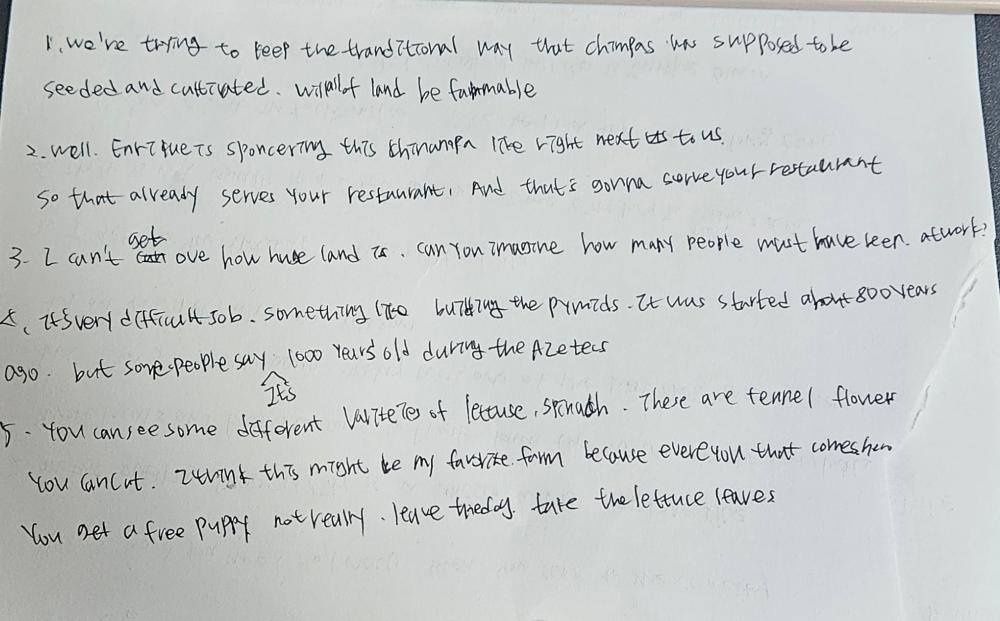 1. we're trying to keep the tranditional way that chimpas was supposed to be
seeded and cultivated. will all of land be farmable
2. well. Enrique is sponcering this chinampa like right next to us.
so that already serves your restaurant. And that's gonna serve your restaurant
3. I can't get ove how huge land is. can you imagine how many people must have been. at work?
4. it's very difficult Job. something like building the pyramids. It was started about 800 years
ago. but some people say It's 1000 years old during the Azetecs
5. You can see some different varieties of lettuce, spinach. These are fennel flower
You can cut. I think this might be my favorite farm because everyou that comes here
You get a free puppy not really. leave the dog. take the lettuce leaves